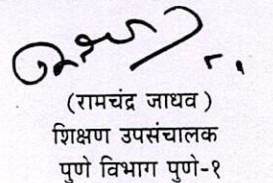 (रामचंद्र जाधव)
शिक्षण उपसंचालक
पुणे विभाग पुणे-१